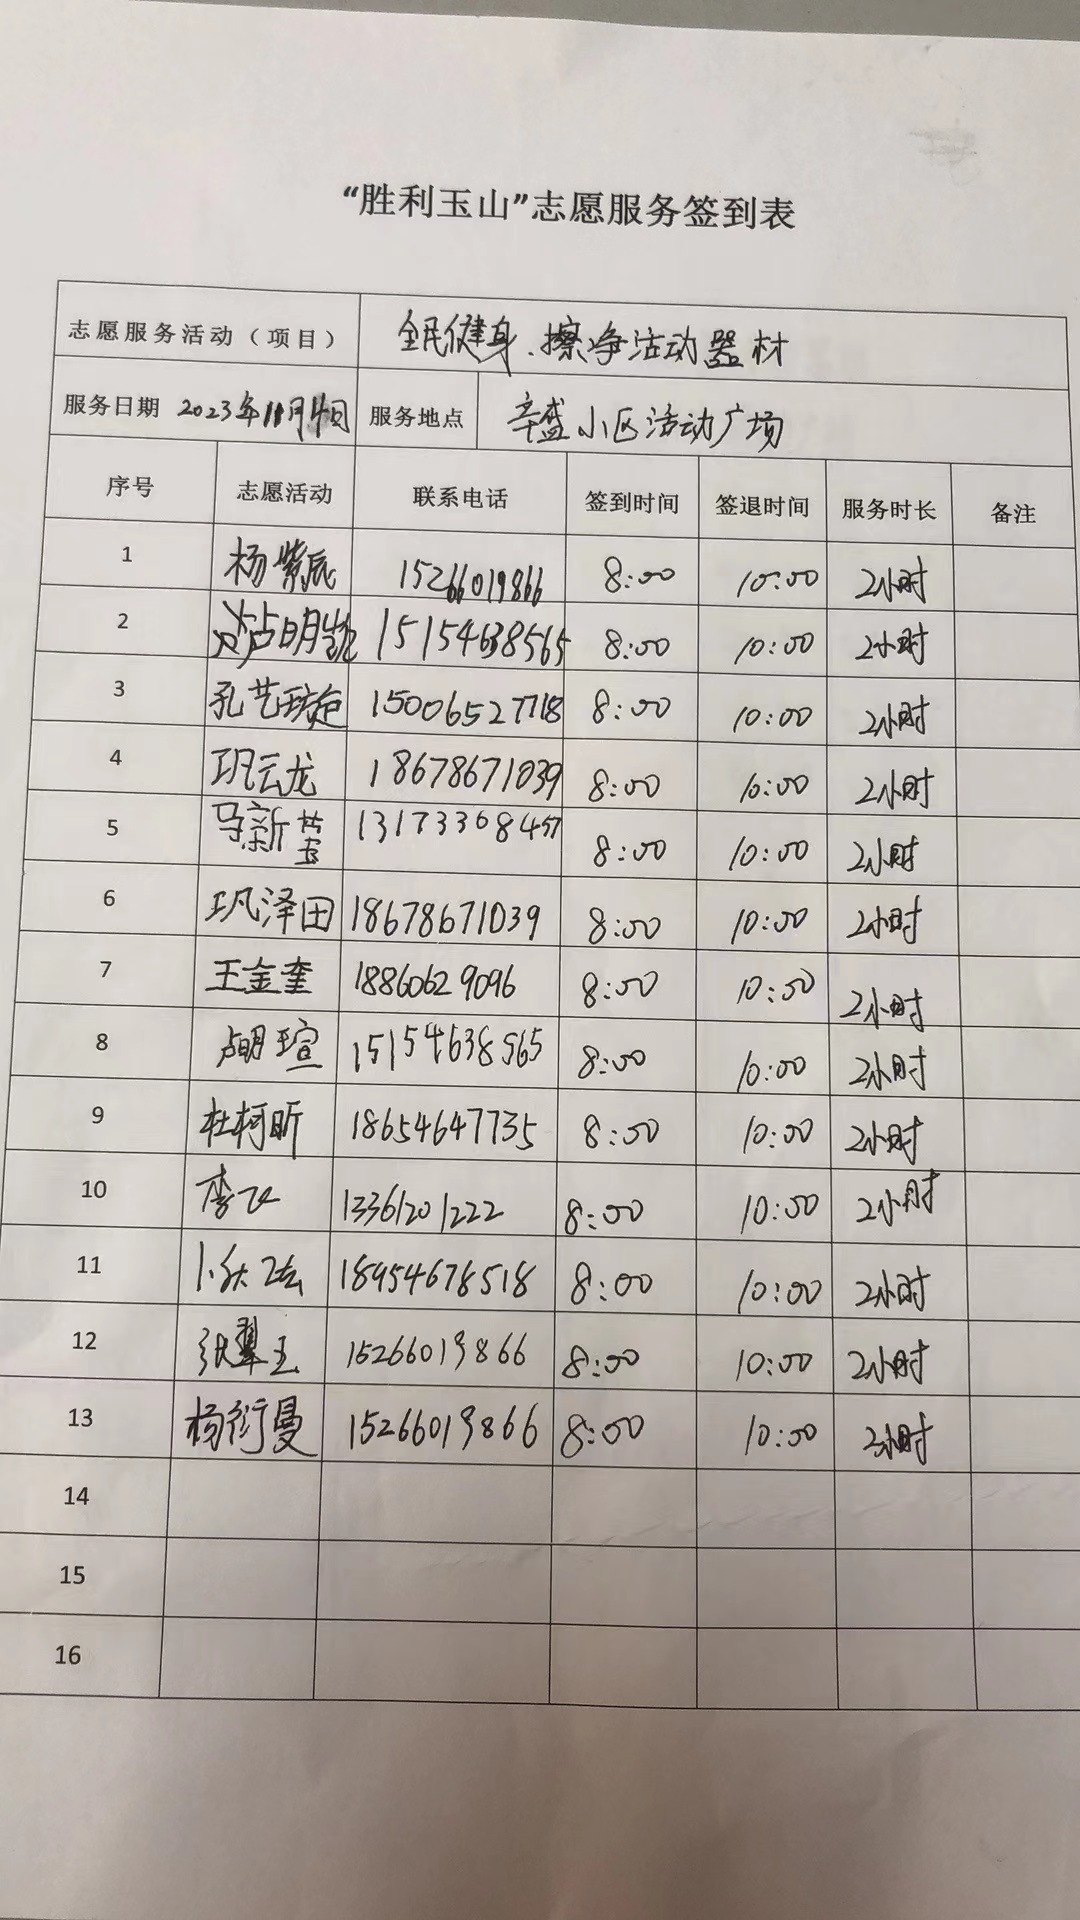 “胜利玉山”志愿服务签到表
志愿服务活动（项目） 全民健身、擦净活动器材
服务日期 2023年11月4日 服务地点 辛盛小区活动广场
序号 志愿活动 联系电话 签到时间 签退时间 服务时长 备注
1 杨紫辰 15266019866 8:00 10:00 2小时
2 卢明凯 15154638565 8:00 10:00 2小时
3 孔艺璇 15006527718 8:00 10:00 2小时
4 巩云龙 18678671039 8:00 10:00 2小时
5 马新莹 13173368457 8:00 10:00 2小时
6 巩泽田 18678671039 8:00 10:00 2小时
7 王金奎 18860629096 8:00 10:00 2小时
8 卢明瑄 15154638565 8:00 10:00 2小时
9 杜柯昕 18654647735 8:00 10:00 2小时
10 李 13361201222 8:00 10:00 2小时
11 18954678518 8:00 10:00 2小时
12 张翠玉 15266019866 8:00 10:00 2小时
13 杨衍曼 15266019866 8:00 10:00 2小时
14
15
16